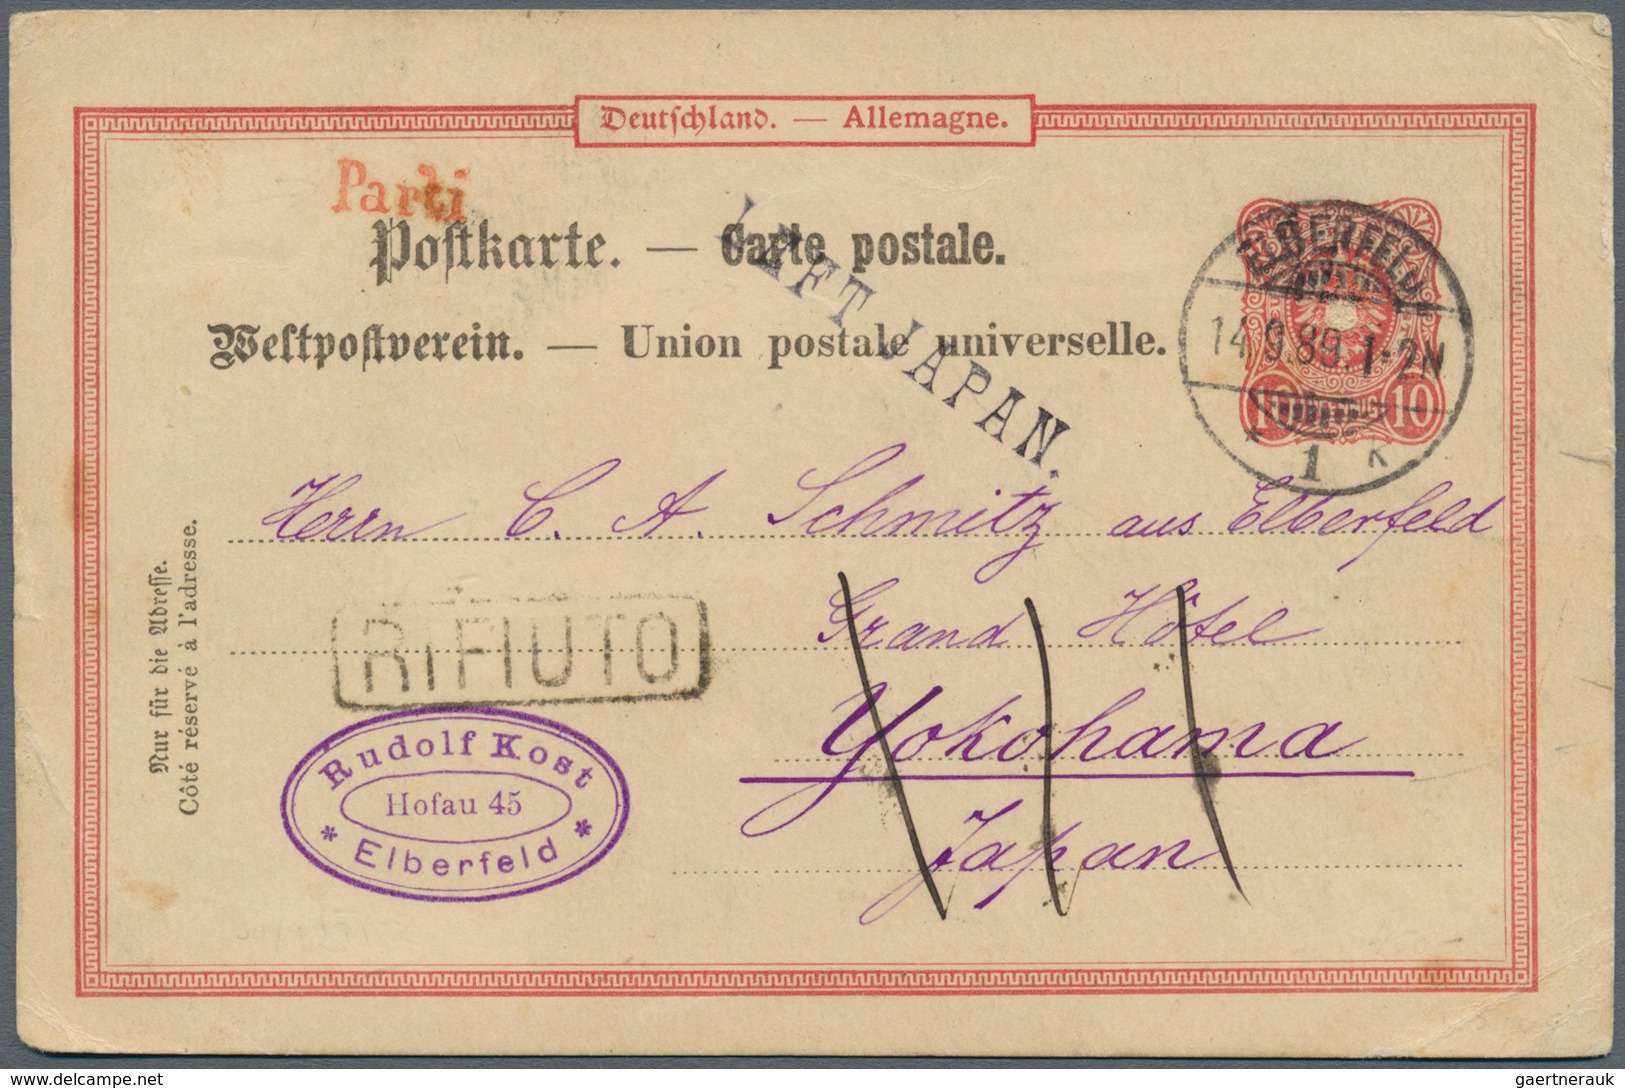 Deutschland. — Allemagne.
Parti
Postkarte. — Carte postale.
LEFT JAPAN.
Weltpostverein. — Union postale universelle.
ELBERFELD
14.9.89. 1-2N.
* 1 K
10 10
Herrn C. A. Schmitz aus Elberfeld
Grand Hôtel
Yokohama
Japan
RIFIUTO
Rudolf Kost
Hofau 45
* Elberfeld *
Nur für die Adresse.
Côté réservé à l'adresse.
www.delcampe.net
gaertnerauk